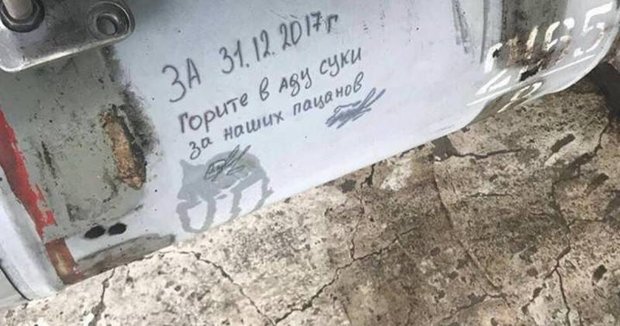 ЗА 31.12.2017г
Горите в аду суки
за наших пацанов